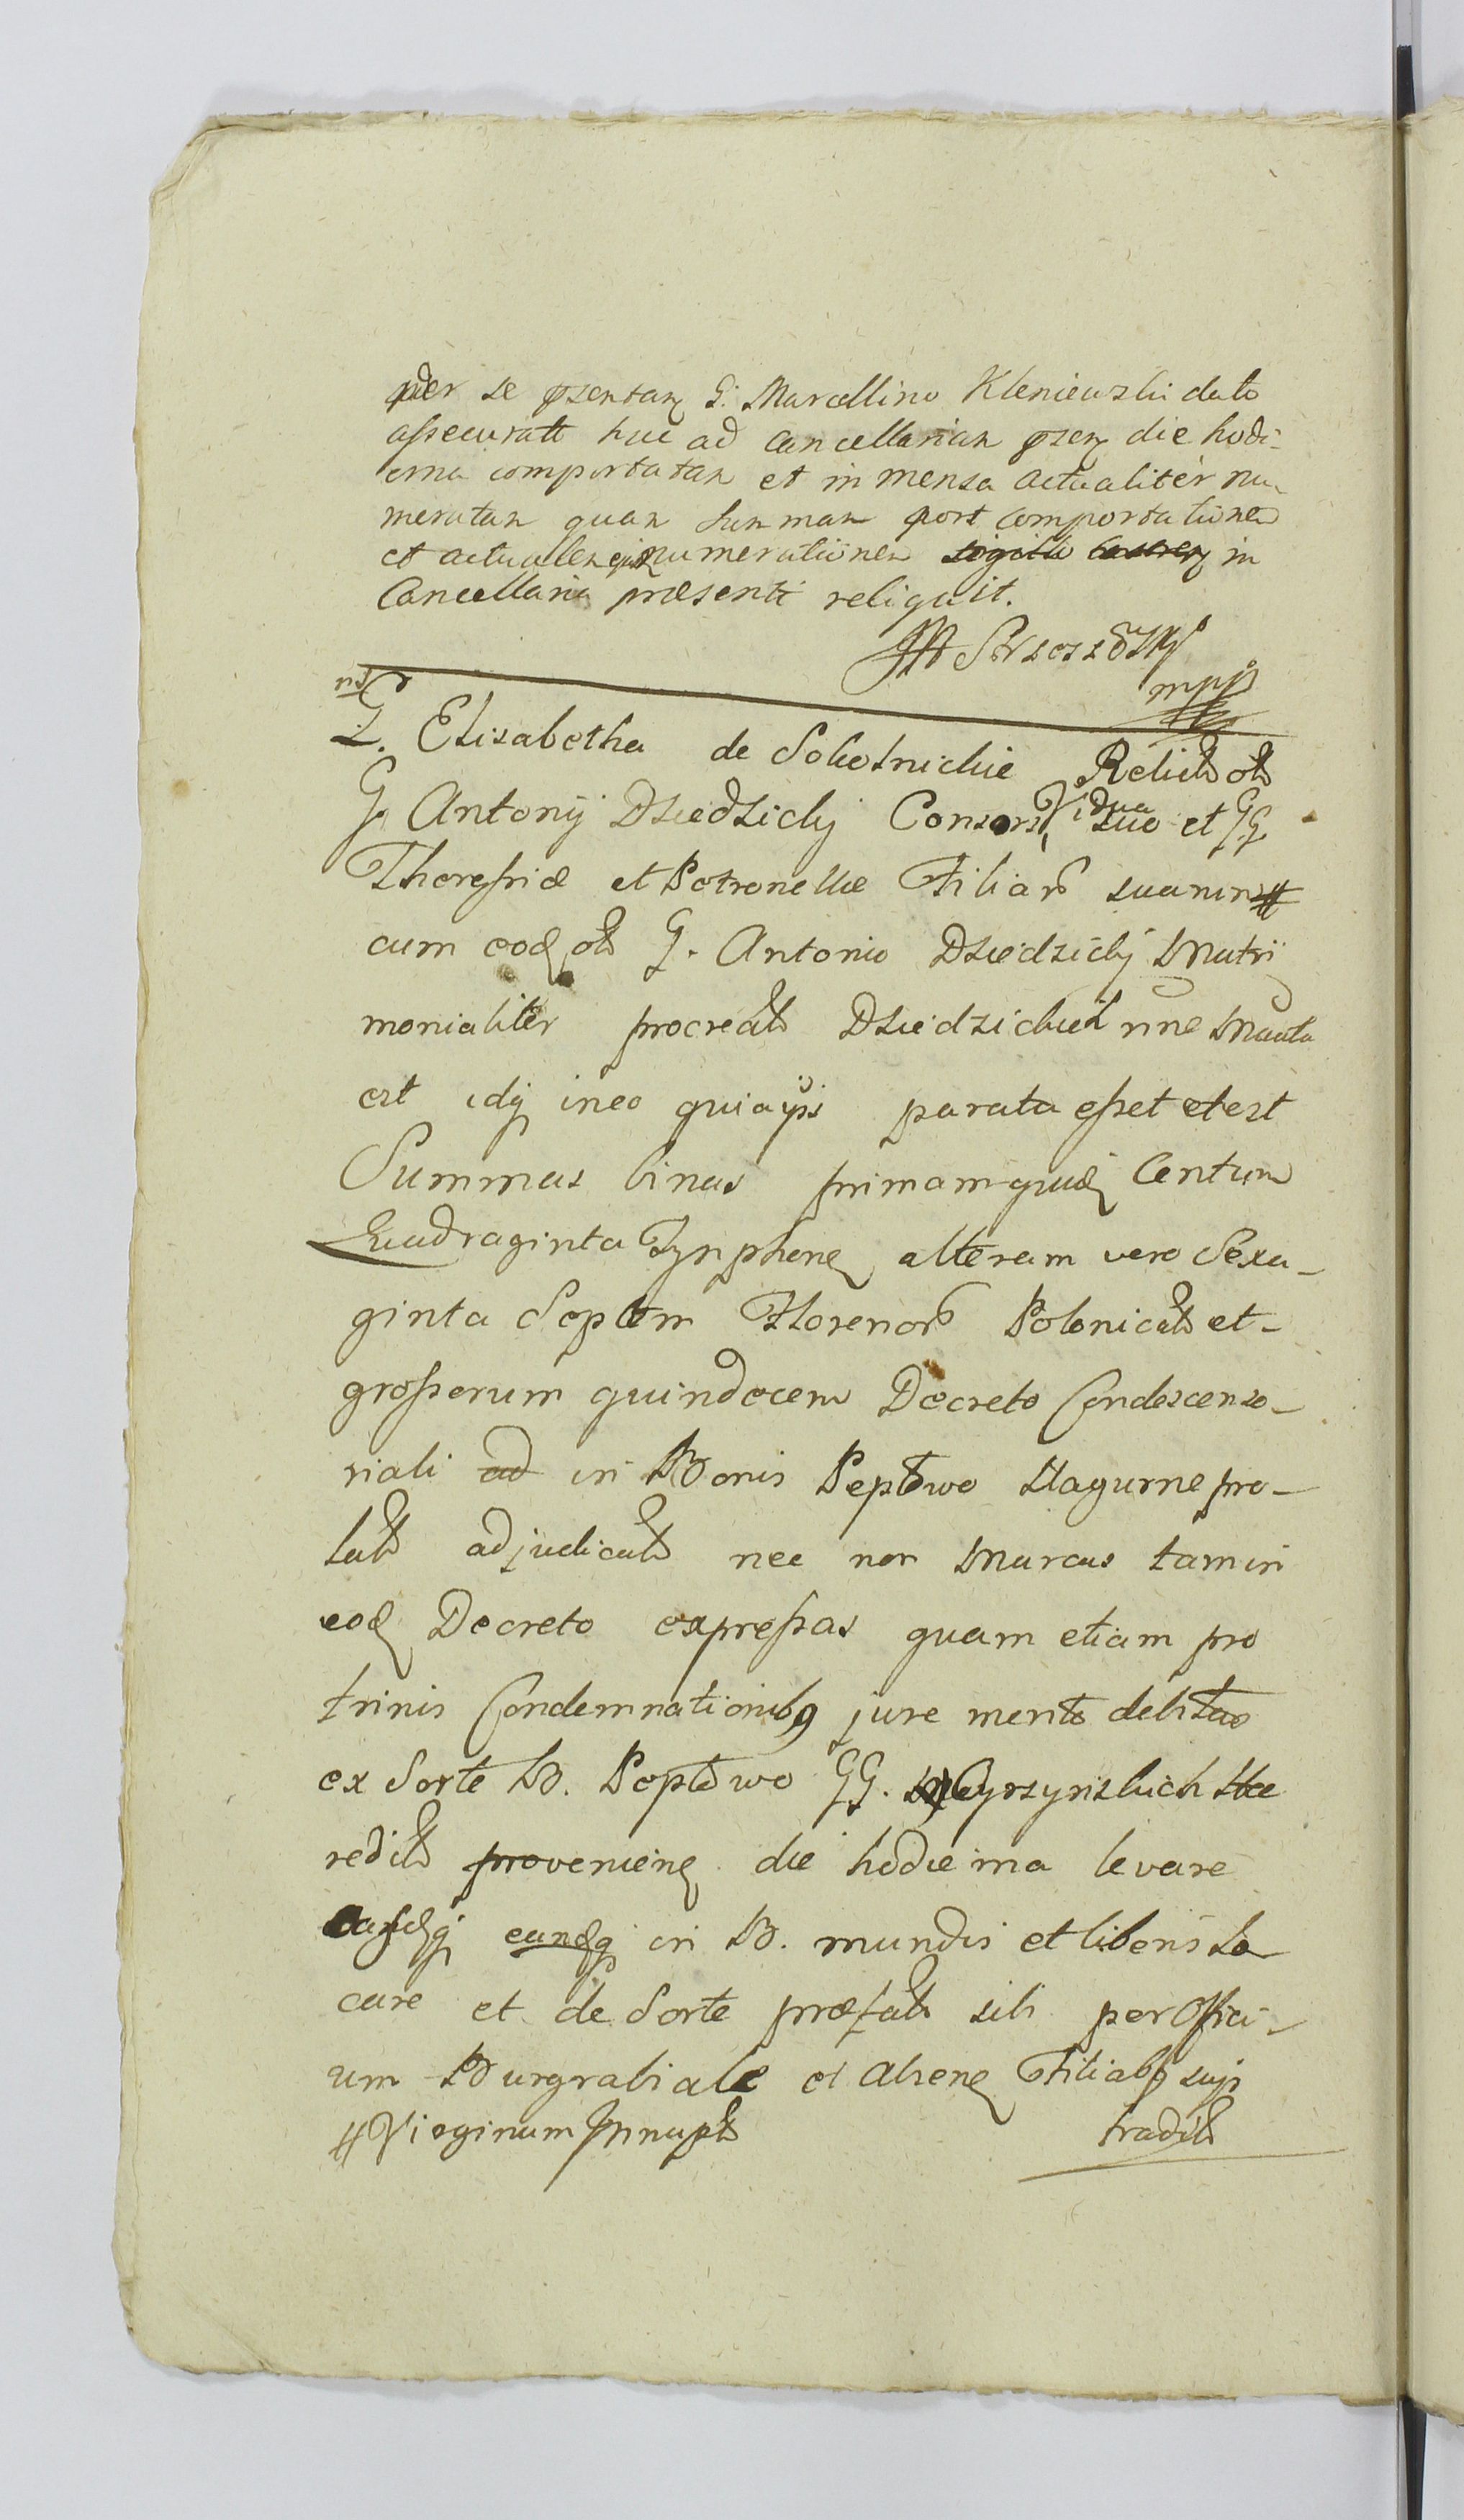 per se psentan G. Marcellino Kleniewski dato
assecuratt huc ad Cancellarian psen die hodi-
erna comportatan et in mensa actualiter nu-
meratan quan Summan post comportationem
et actualen ejusd numerationen sigillo in
Cancellaria præsenti reliquit.
mpp
G. Elisabetha de Sokolnickie Relicta olt
G. Antonij Dziedzicky Consors Vidua et GG.
Theressiæ et Petronellæ Filiarum suarum #
cum eod olt G. Antonio Dziedzicky Matri
monialiter procreat Dziedzickie nne
est idq ineo quia ipsi parata esset et est
Summas binas primam quid Centum
Quadraginta Tynphone alteram vero Sexa-
ginta Septem Florenor Polonical et
grosserum quindecem Decreto Condescenso-
riali ad in Bonis Peptowo Nagurne pro-
lat adjudicat nec non Marcas tam in
eod Decreto expressas quam etiam pro
trinis Condemnationibq jure merito debitas
ex Sorte B. Peptowo GG. Cyrsynskich Hæ
redit provenien die hodierna levare
easdq eandq in B. mundis et liberis Lo
care et de Sorte præfat sibi per Offici-
um Burgrabiale et Abene Filiabq suis
# Virginum Innupt tradit